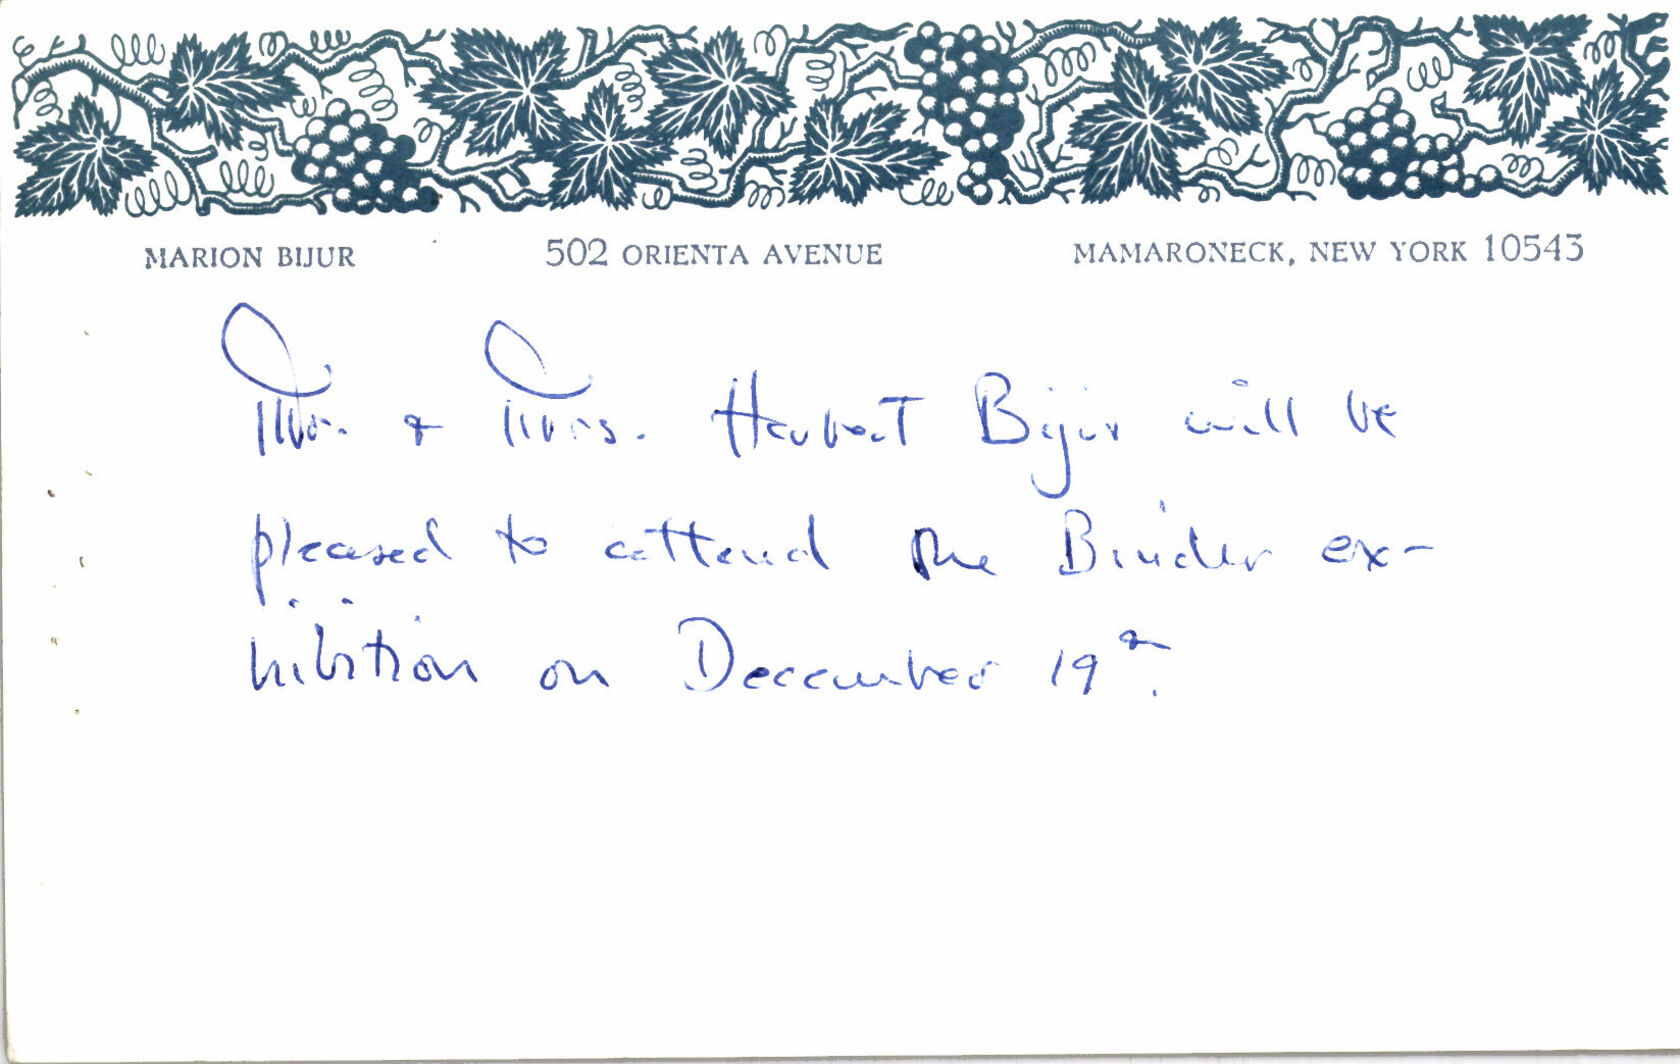 MARION BIJUR 502 ORIENTA AVENUE MAMARONECK, NEW YORK 10543
Mr. & Mrs. Herbert Bijur will be
pleased to attend the Binder ex-
hibition on December 19th.